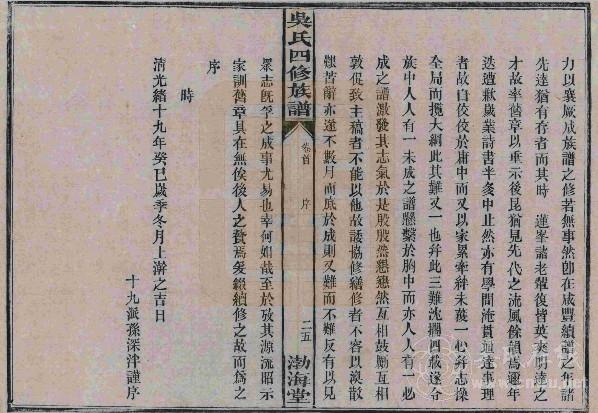 力以襄厥成族譜之修若無事然卽在咸豐續譜之年諸
先達猶有存者而其時 蓮峯諸老輩後皆英爽明達之
才故率舊章以垂示後昆猶見先代之流風餘韻焉邇年
迭遭歉歲業詩書半多中止然亦有學問淹貫通達事理
者故自佼佼於庸中而又以家累牽絆未獲一心并志操
全局而攬大綱此其難又一也幷此三難沈擱四載遂令
族中人人有一未成之譜懸繫於胸中而亦人人有一必
成之譜激發其志氣於是殷殷然懇懇然互相鼓勵互相
敦促致主稿者不能以他故諉協修繕修者不容以渙散
艱苦辭亦遂不數月而底於成則又難而不難反有以見
吳氏四修族譜 卷首 序 二五 渤海堂
眾志旣孚之成事尤易也幸何如哉至於攷其源流昭示
家訓舊章具在無俟後人之贅焉爰綴續修之故而爲之
序
時
淸光緖十九年癸巳歲季冬月上澣之吉日
十九派孫深泮謹序